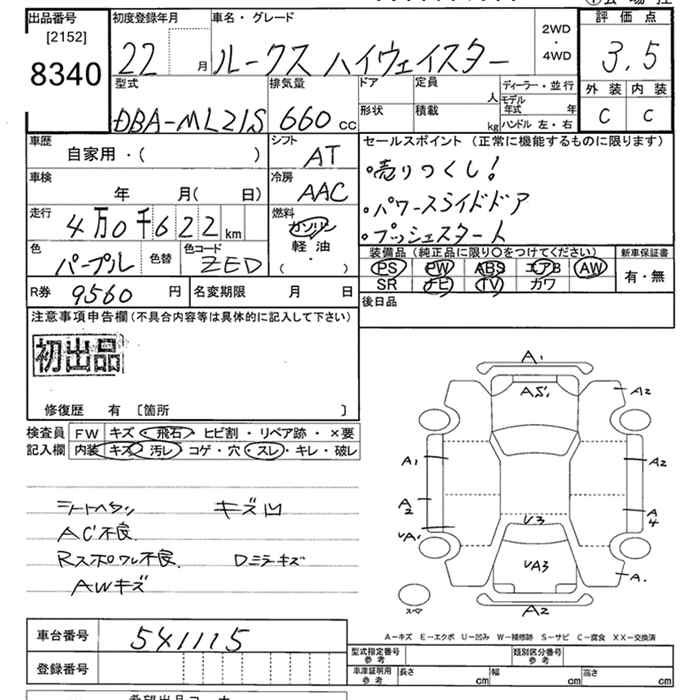 出品番号 初度登録年月 車名・グレード 評価点
[2152]
8340 22 月 ルークス ハイウェイスター 2WD・4WD 3.5
型式 排気量 ドア 定員 人 ディーラー・並行 外装 内装
DBA-ML21S 660cc 形状 積載 kg モデル年式 年 ハンドル 左・右 C C
車歴 シフト セールスポイント (正常に機能するものに限ります)
自家用・( ) AT ・売りつくし!
車検 冷房
年 月( 日) AAC ・パワースライドドア
走行 燃料
4万0千622km ガソリン ・プッシュスタート
色 色替 色コード 軽油 装備品 (純正品に限り〇をつけてください) 新車保証書
パープル ZED ・( ) PS PW ABS エアB AW 有・無
R券 9560円 名変期限 月 日 SR ナビ TV カワ
注意事項申告欄 (不具合内容等は具体的に記入して下さい) 後日品
初出品
修復歴 有 [箇所 ]
検査員 FW キズ・飛石・ヒビ割・リペア跡・×要
記入欄 内装 キズ・汚レ コゲ・穴・スレ・キレ・破レ
シートヘタリ キズ凹
AC不良
Rスポワレ不良. Dミラーキズ
AWキズ
A1
A51
A2
A1 A2
A2 A4
UA1 V3
UA3 A1
スペア A2
A-キズ E-エクボ U-凹み W-補修跡 S-サビ C-腐食 XX-交換済
車台番号 541115 型式指定番号 参考 類別区分番号 参考
登録番号 車庫証明用 参考 長さ cm 幅 cm 高さ cm